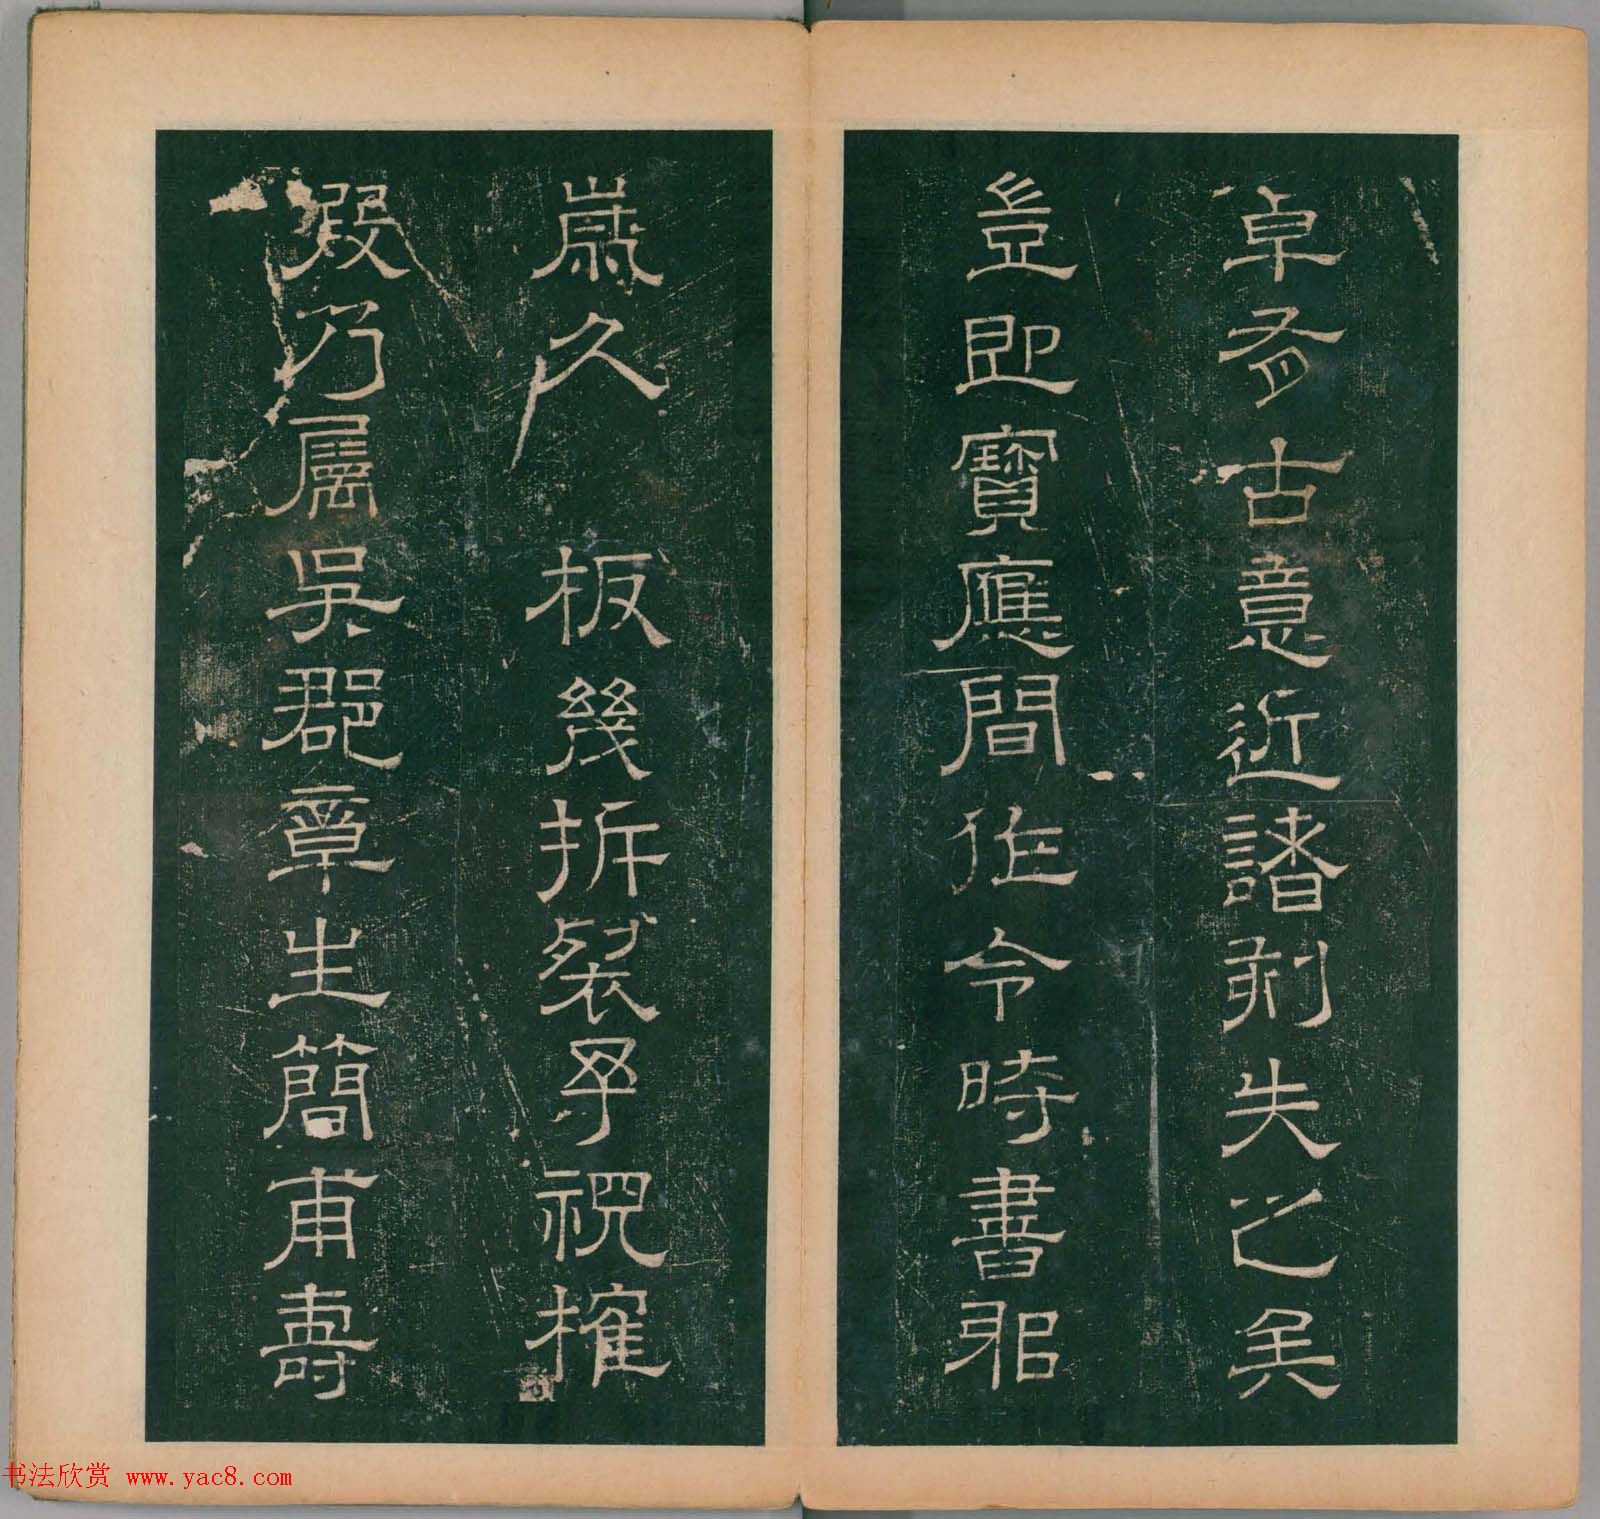 卓有古意近諸刻失之矣
豈即寶應間作令時書耶
歲久板幾拆裂予視摧
毀乃屬吳郡章生簡甫壽
书法欣赏 www.yac8.com